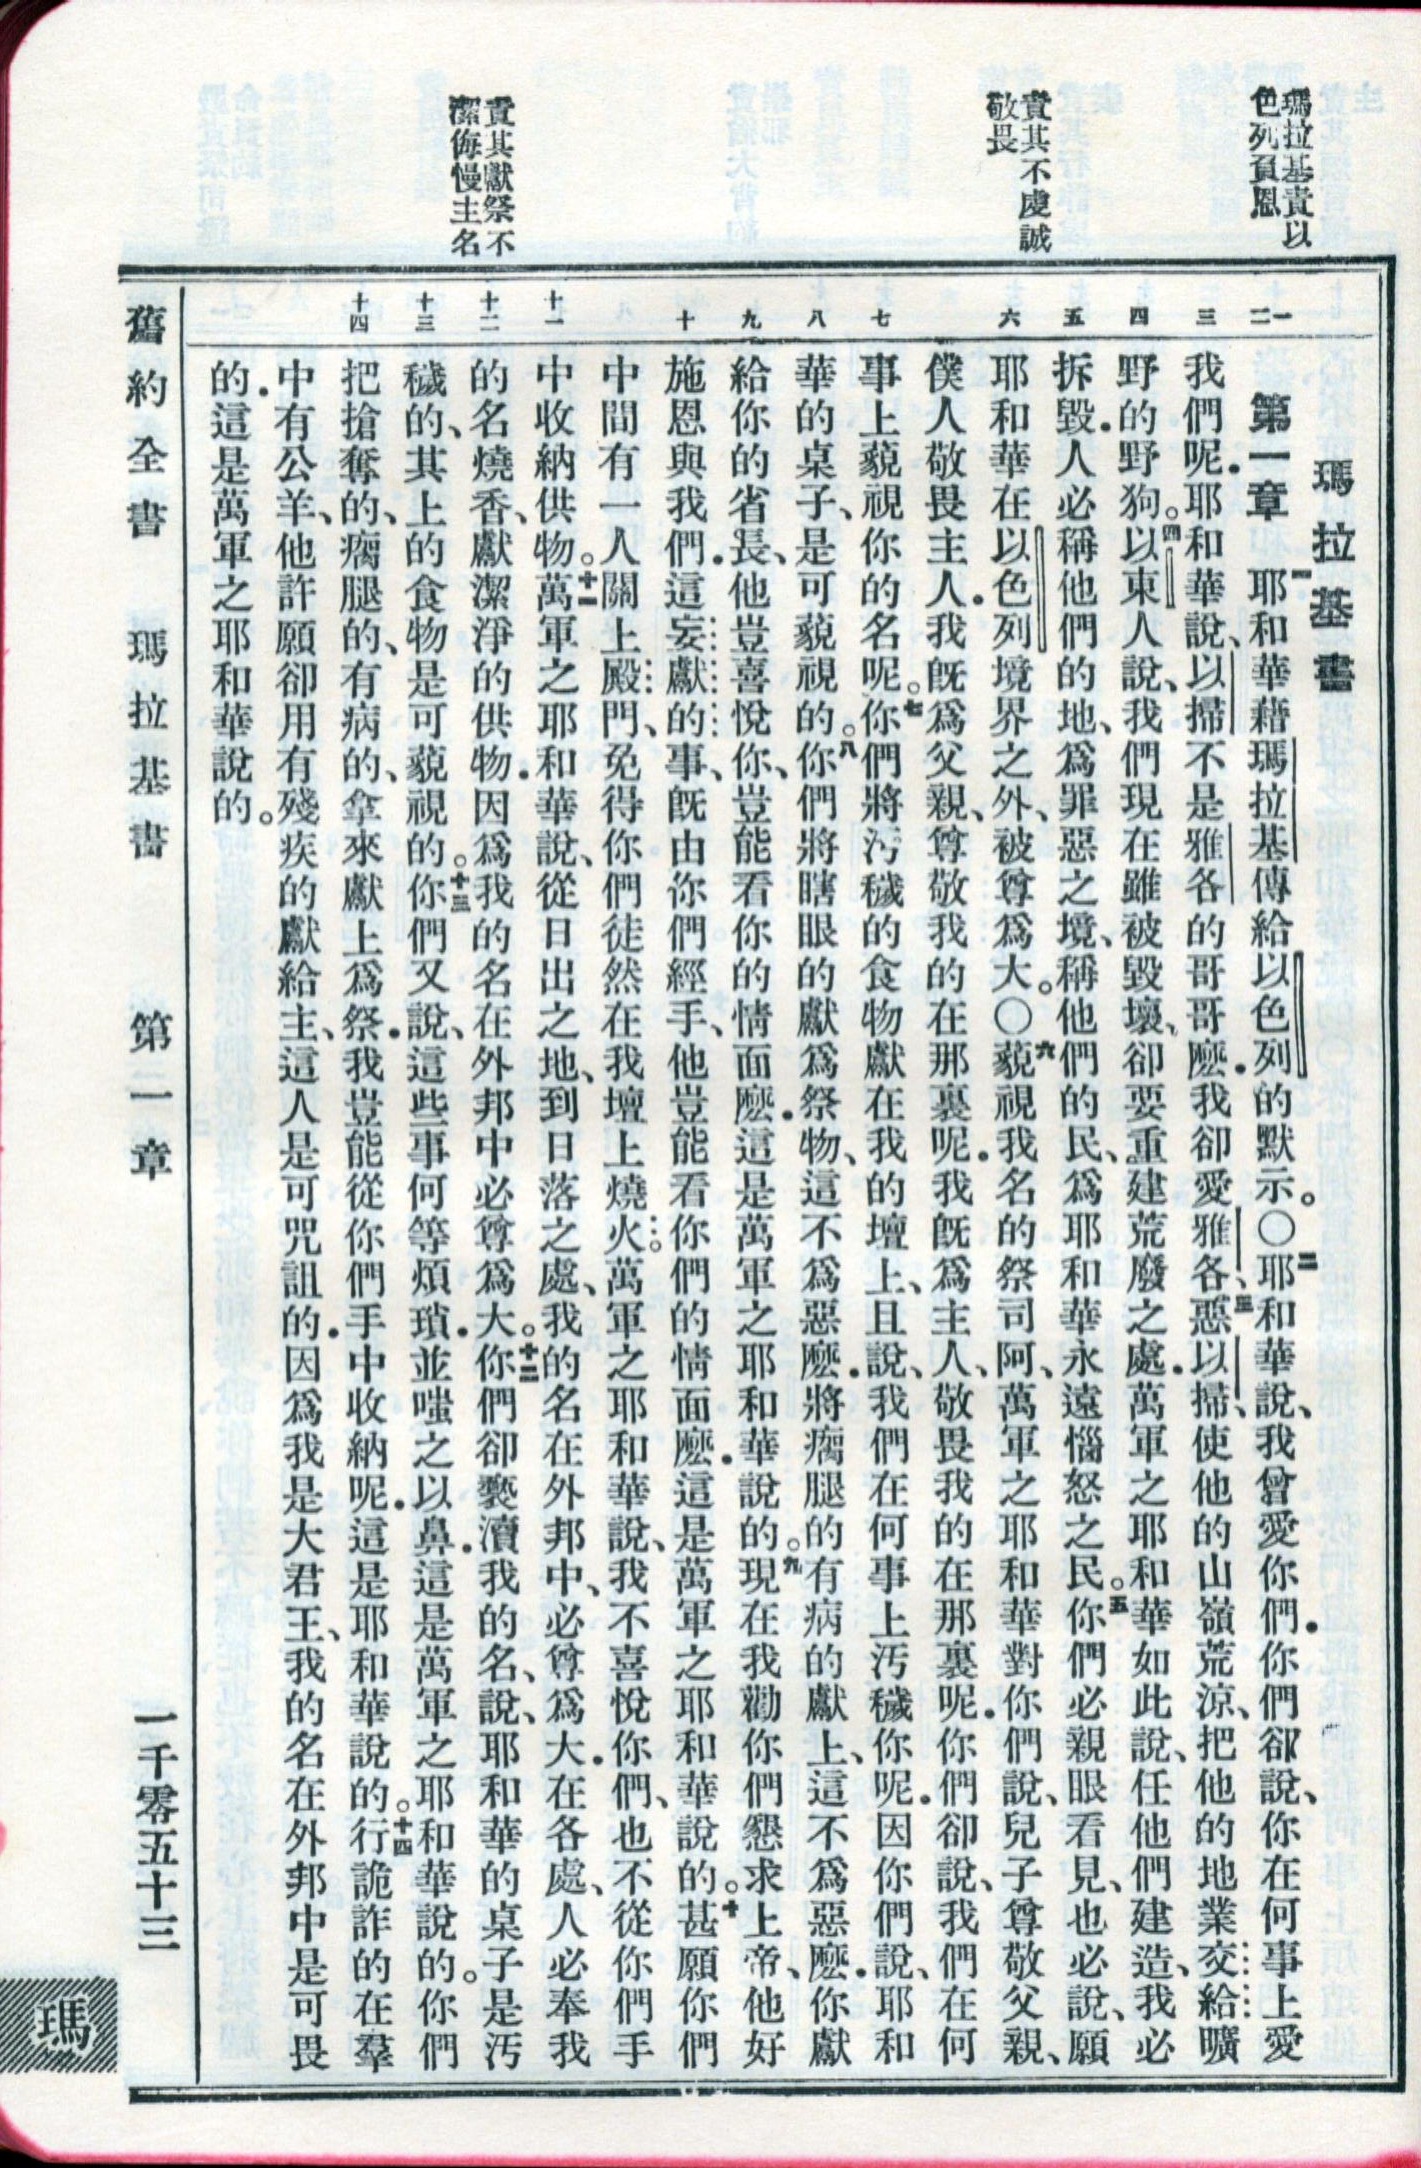 瑪拉基責以
色列負恩
責其不虔誠
敬畏
責其獻祭不
潔侮慢主名
一二 三 四 五 六 七 八 九 十 十一 十二 十三 十四
瑪拉基書
第一章 一耶和華藉瑪拉基傳給以色列的默示。〇二耶和華說、我曾愛你們．你們卻說、你在何事上愛
我們呢．耶和華說、以掃不是雅各的哥哥麽．我卻愛雅各、三惡以掃、使他的山嶺荒涼、把他的地業交給曠
野的野狗。四以東人說、我們現在雖被毀壞、卻要重建荒廢之處．萬軍之耶和華如此說、任他們建造、我必
拆毀．人必稱他們的地、爲罪惡之境、稱他們的民、爲耶和華永遠惱怒之民。五你們必親眼看見、也必說、願
耶和華在以色列境界之外、被尊爲大。〇六藐視我名的祭司阿、萬軍之耶和華對你們說、兒子尊敬父親、
僕人敬畏主人．我旣爲父親、尊敬我的在那裏呢．我旣爲主人、敬畏我的在那裏呢．你們卻說、我們在何
事上藐視你的名呢。七你們將污穢的食物獻在我的壇上、且說、我們在何事上污穢你呢．因你們說、耶和
華的桌子、是可藐視的。八你們將瞎眼的獻爲祭物、這不爲惡麽．將瘸腿的有病的獻上、這不爲惡麽．你獻
給你的省長、他豈喜悅你、豈能看你的情面麽．這是萬軍之耶和華說的。九現在我勸你們懇求上帝、他好
施恩與我們．這妄獻的事、旣由你們經手、他豈能看你們的情面麽．這是萬軍之耶和華說的。十甚願你們
中間有一人關上殿門、免得你們徒然在我壇上燒火。萬軍之耶和華說、我不喜悅你們、也不從你們手
中收納供物。十一萬軍之耶和華說、從日出之地、到日落之處、我的名在外邦中、必尊爲大．在各處、人必奉我
的名燒香、獻潔淨的供物．因爲我的名在外邦中必尊爲大。十二你們卻褻瀆我的名、說、耶和華的桌子是污
穢的、其上的食物是可藐視的。十三你們又說、這些事何等煩瑣．並嗤之以鼻．這是萬軍之耶和華說的。你們
把搶奪的、瘸腿的、有病的、拿來獻上爲祭．我豈能從你們手中收納呢．這是耶和華說的。十四行詭詐的在羣
中有公羊、他許願卻用有殘疾的獻給主、這人是可咒詛的．因爲我是大君王、我的名在外邦中是可畏
的．這是萬軍之耶和華說的。
舊約全書 瑪拉基書 第一章 一千零五十三
瑪